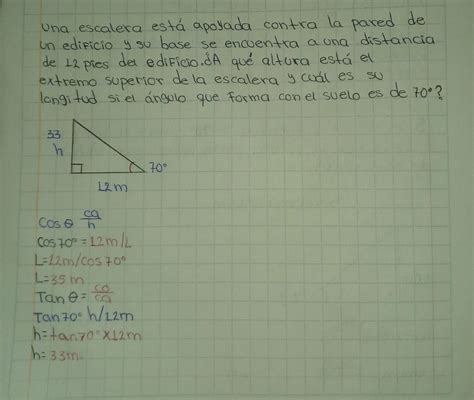 Una escalera está apoyada contra la pared de
un edificio y su base se encuentra a una distancia
de 12 pies del edificio. ¿A qué altura está el
extremo superior de la escalera y cuál es su
longitud si el ángulo que forma con el suelo es de 70°?
33
h
70°
12m
Cos θ ca/h
Cos 70° = 12m/L
L=12m/cos 70°
L=35m
Tan θ = co/ca
Tan 70° h/12m
h=tan 70° x 12m
h=33m.